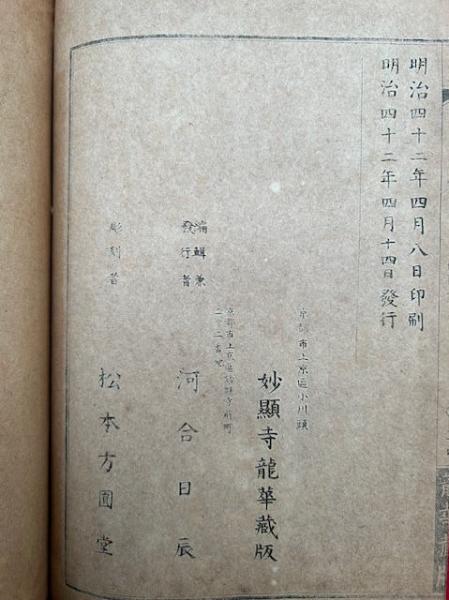 明治四十二年四月八日印刷
明治四十二年四月十四日發行
京都市上京區小川頭
妙顯寺龍華藏版
京都市上京區妙顯寺前町
編輯兼
發行者
河合日辰
彫刻者
松本方圓堂